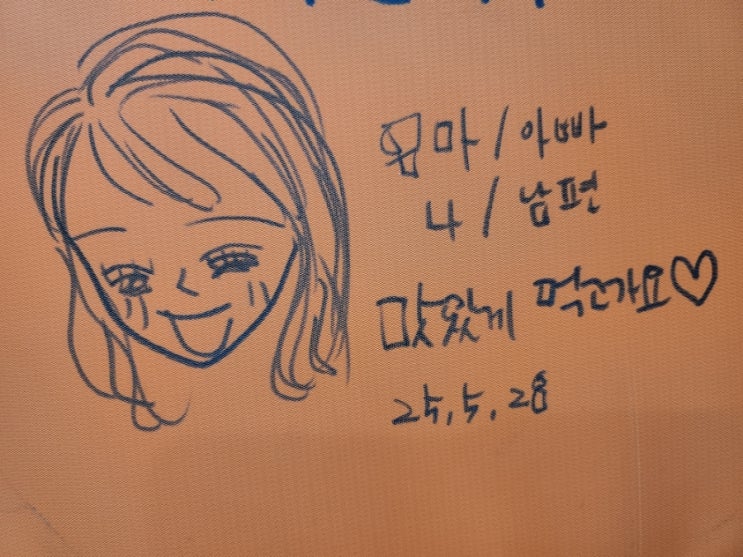 엄마 / 아빠
나 / 남편
맛있게 먹고가요♡
25. 5. 28